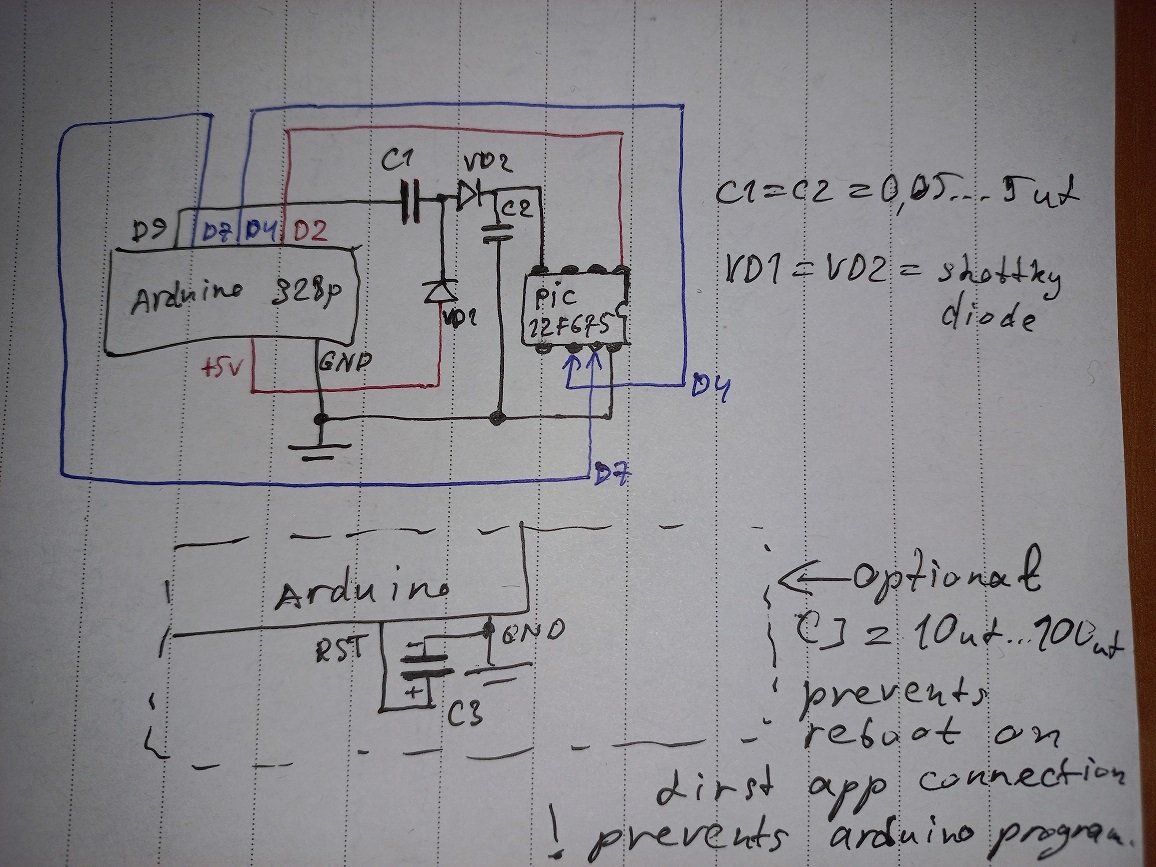 C1 VD2
C2
D9 D7 D4 D2
Arduino 328p
VD1
PIC
12F675
+5V GND
D4
D7
C1=C2=0,05...5uf
VD1=VD2= shottky
diode
Arduino
RST GND
-
+
C3
← optional
C3 = 10uf...100uf
prevents
reboot on
first app connection
! prevents arduino program.